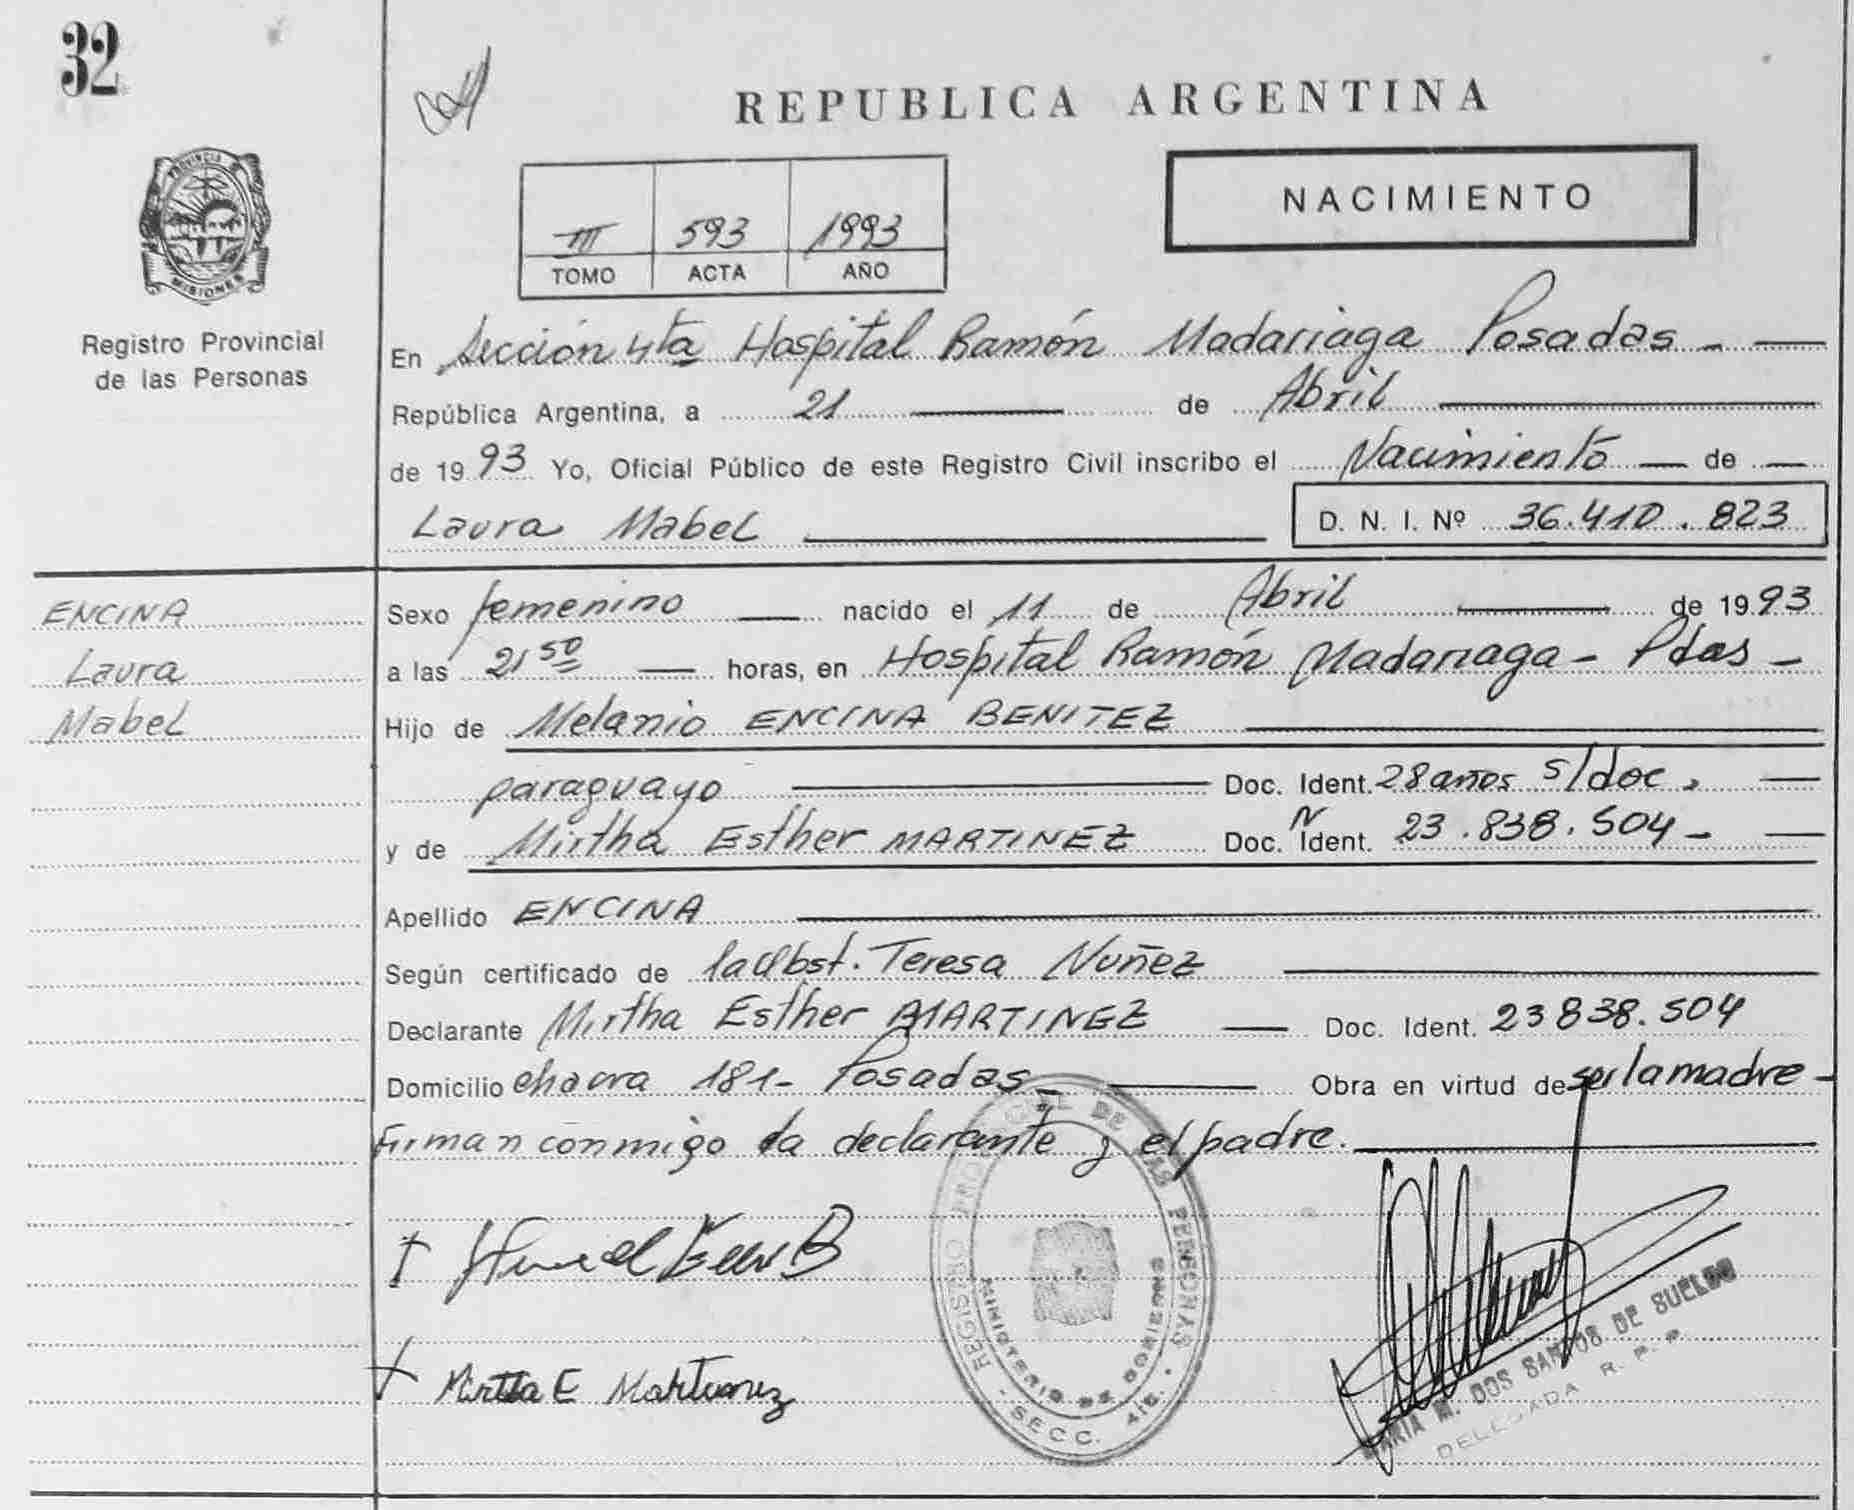 32
REPUBLICA ARGENTINA
NACIMIENTO
III 593 1993
TOMO ACTA AÑO
PROVINCIA DE
MISIONES
Registro Provincial
de las Personas
En Sección 4ta Hospital Ramón Madariaga Posadas - —
República Argentina, a 21 — de Abril —
de 1993 Yo, Oficial Público de este Registro Civil inscribo el Nacimiento — de —
Laura Mabel — D. N. I. Nº 36.410.823
ENCINA
Laura
Mabel
Sexo femenino — nacido el 11 de Abril — de 1993
a las 21 50 — horas, en Hospital Ramón Madariaga - Pdas -
Hijo de Melanio ENCINA BENITEZ —
paraguayo — Doc. Ident. 28 años s/doc. —
y de Mirtha Esther MARTINEZ Doc. N Ident. 23.838.504 - —
Apellido ENCINA —
Según certificado de la Obst. Teresa Nuñez —
Declarante Mirtha Esther MARTINEZ — Doc. Ident. 23 838.504
Domicilio chacra 181- Posadas - — Obra en virtud de ser la madre -
Firman conmigo la declarante y el padre. —
REGISTRO PROVINCIAL DE LAS PERSONAS
MINISTERIO DE GOBIERNO
- SECC. 4ta. -
Mirtha E Martinez
MARIA M. DOS SANTOS DE SUELDO
DELEGADA R. P. P.